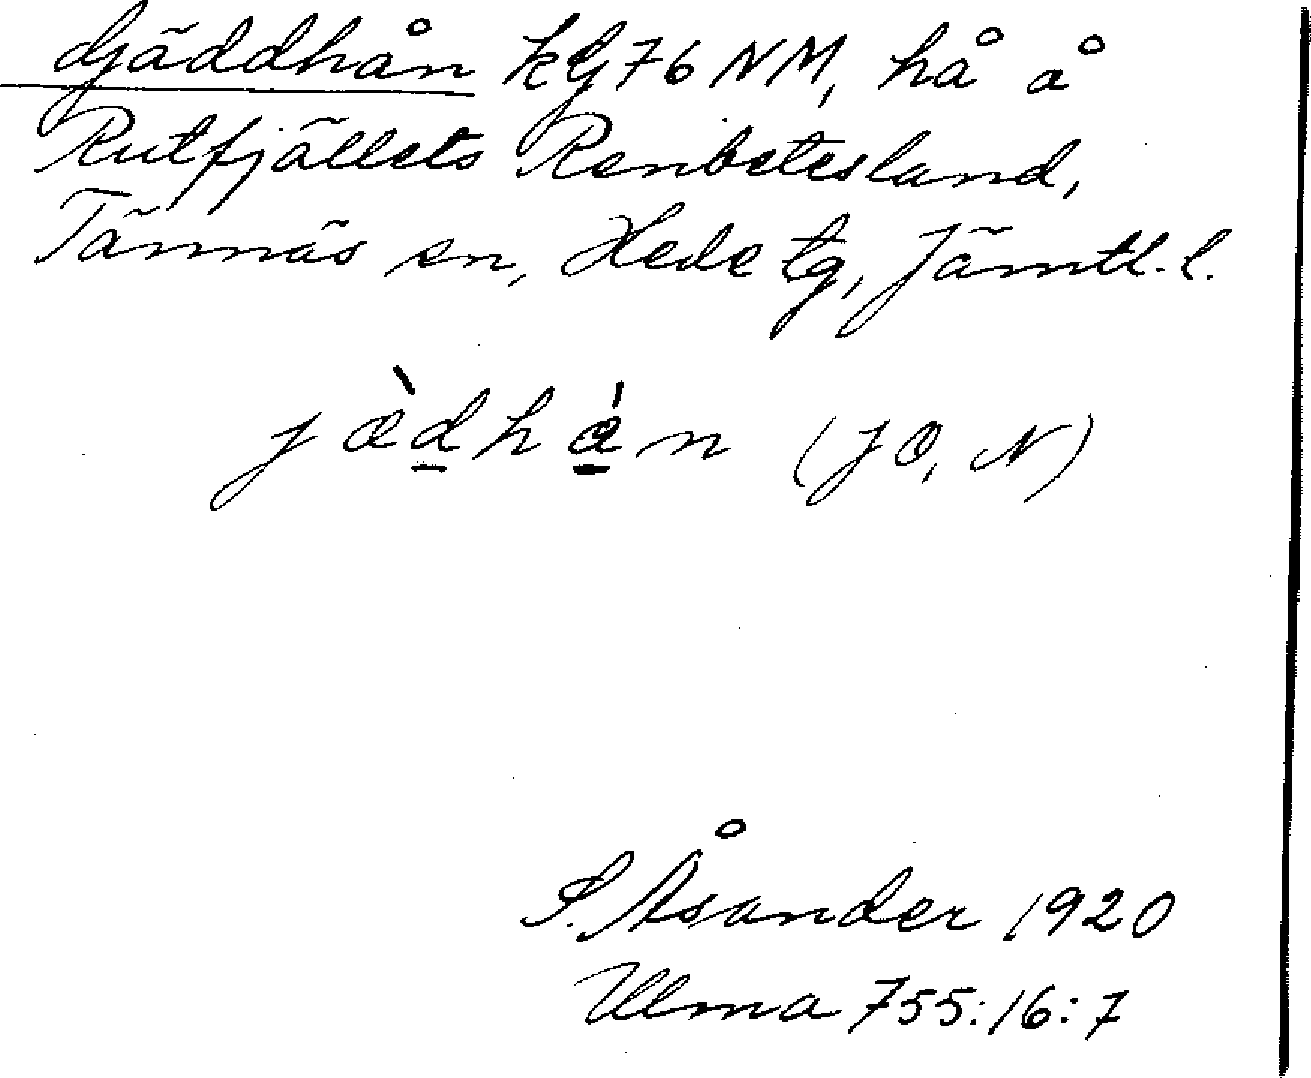 Gjäddhån kg 76 NM, hå å
Rutfjällets Renbetesland,
Tännäs sn, Hede tg, Jämtl. l.
jæ̀dhǻn (JO, N)
S. Åsander 1920
Ulma 755:16:7